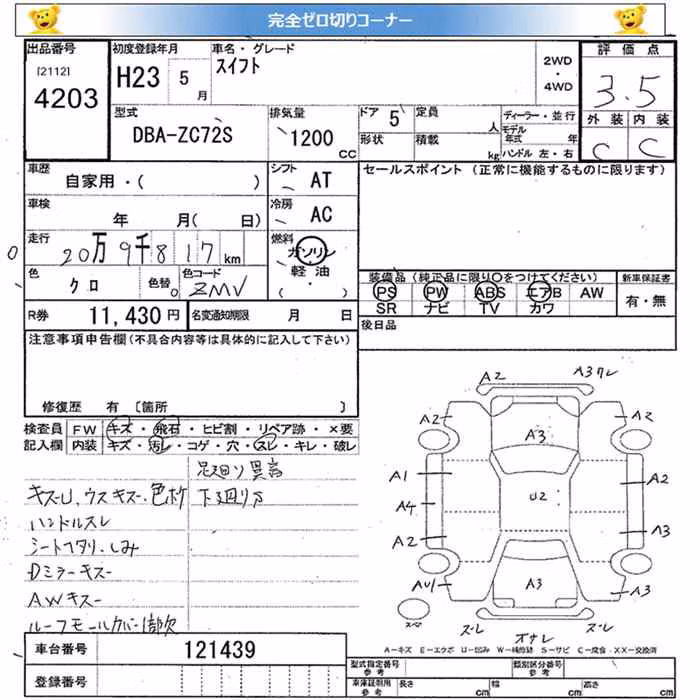 完全ゼロ切りコーナー
出品番号
[2112]
4203
初度登録年月
H23 5月
車名・グレード
スイフト
2WD
・
4WD
評価点
3.5
外装 内装
C C
型式
DBA-ZC72S
排気量
1200
CC
ドア 5
定員
人
形状
積載
kg
ディーラー・並行
モデル年式 年
ハンドル 左・右
車歴
自家用・( )
シフト
AT
セールスポイント (正常に機能するものに限ります)
車検
年 月( 日)
冷房
AC
走行
20万9千817km
燃料
ガソリン
・
軽油
・
( )
色
クロ
色替
0
色コード
ZMV
装備品 (純正品に限り○をつけてください)
新車保証書
PS PW ABS エアB AW
有・無
SR ナビ TV カワ
R券 11,430円
名変通知期限 月 日
後日品
注意事項申告欄(不具合内容等は具体的に記入して下さい)
修復歴 有 〔箇所 〕
検査員記入欄
FW キズ・飛石・ヒビ割・リペア跡・×要
内装 キズ・汚レ・コゲ・穴・スレ・キレ・破レ
足廻り異音
キズU、ウスキズ、色ボケ 下廻りサ
ハンドルスレ
シートヘタリ、しみ
Dミラーキズ
AWキズ
ルーフモールカバー1部欠
A2 A3ワレ
A2 A3 A2
A1 A2
A4 U2
A2 A3
AU1 A3 A3
スペア
ズレ オナレ ズレ
A－キズ E－エクボ U－凹み W－補修跡 S－サビ C－腐食 ・XX－交換済
車台番号 121439
登録番号
型式指定番号
参考
類別区分番号
参考
車庫証明用
参考
長さ cm
幅 cm
高さ cm